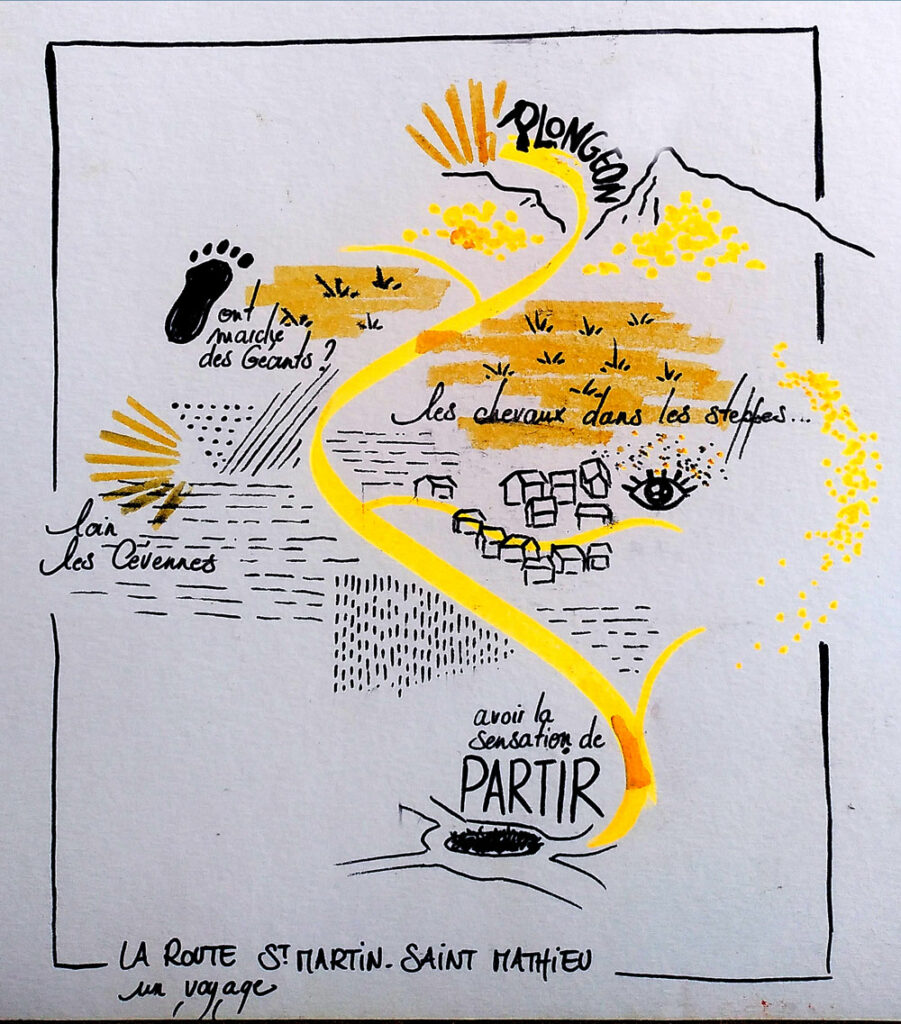 PLONGEON
ont
marché
des Géants ?
les chevaux dans les steppes...
loin
les Cévennes
avoir la
sensation de
PARTIR
LA ROUTE ST MARTIN - SAINT MATHIEU
un voyage